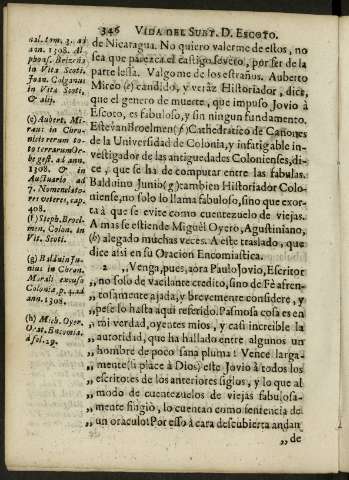 346 VIDA DEL SUBT. D. ESCOTO.
de Nicaragua. No quiero valerme de estos, no
sea que parezca el castigo severo, por ser de la
parte lesa. Valgome de los estraños. Auberto
Mireo (e) candido, y veràz Historiador, dice,
que el genero de muerte, que impuso Jovio à
Escoto, es fabuloso, y sin ningun fundamento.
Estevan Broelmen (f) Cathedratico de Canones
de la Universidad de Colonia, y infatigable in-
vestigador de las antiguedades Colonienses, di-
ce, que se ha de computar entre las fabulas.
Balduino Junio (g) tambien Historiador Colo-
niense, no solo lo llama fabuloso, sino que exor-
ta à que se evite como cuentezuelo de viejas.
A mas se estiende Miguèl Oyero, Agustiniano,
(h) alegado muchas veces. A este traslado, que
dice asi en su Oracion Encomiastica.
2 ,,Venga, pues, aora Paulo Jovio, Escritor
,,no solo de vacilante credito, sino de Fè afren-
,,tosamente ajada, y brevemente considere, y
,,pese lo hasta aqui referido. Pasmosa cosa es en
,,mi verdad, oyentes mios, y casi increible la
,,autoridad, que ha hallado entre algunos un
,,hombre de poco sana pluma! Vence larga-
,,mente (si place à Dios) este Jovio à todos los
,,escritores de los anteriores siglos, y lo que al
,,modo de cuentezuelos de viejas fabulosa-
,,mente fingiò, lo cuentan como sentencia de
,,un oraculo! Por esso à cara descubierta andan
,,de
nal. tom. 3. ad
ann. 1308. Al-
phons. Brizeño
in Vita Scoti.
Joan. Colganus
in Vita Scoti.
& alij.
(e) Aubert. Mi-
raus in Chro-
nicis rerum to-
to terrarum Or-
be gest. ad ann.
1308. & in
Auctuario ad
7. Nomenclato-
res veteres, cap.
408.
(f) Steph. Broel-
men, Colon. in
Vit. Scoti.
(g) Balduin Ju-
nius in Chron.
Morali excuso
Coloniæ, p. 4. ad
ann. 1308.
(h) Mich. Oyer.
Orat. Encomia.
à fol. 29.